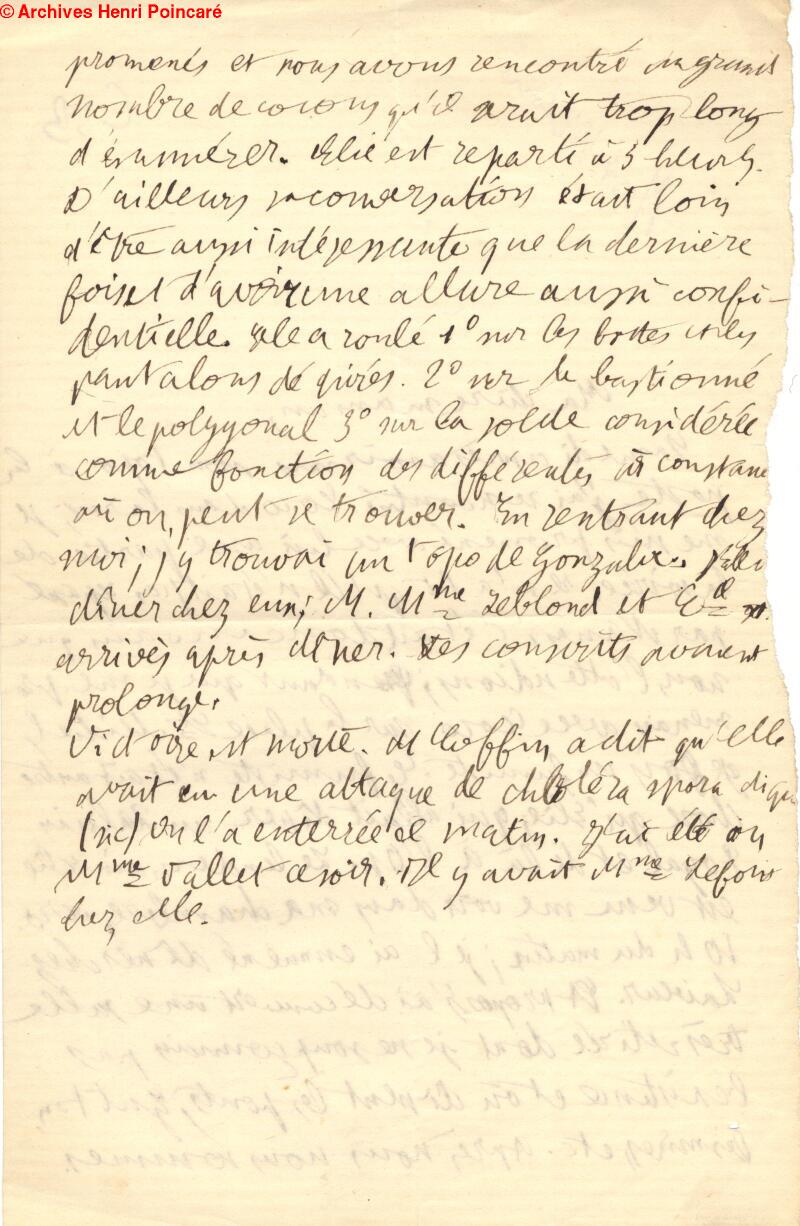 © Archives Henri Poincaré
promenés et nous avons rencontré un grand
nombre de cocons qu'il serait trop long
d'énumérer. Elie est reparti à 5 heures.
D'ailleurs sa conversation était loin
d'être aussi intéressante que la dernière
fois et d'avoir une allure aussi confi-
dentielle. Elle a roulé 1º sur les bottes et les
pantalons de 2º sur le bastionné
et le polygonal 3º sur la solde considérée
comme fonction des différentes constan
où on peut se trouver. En rentrant chez
moi; j'y trouvai un topo de Gonzalve.
dîner chez eux; M. Mme Leblond et
arrivés après dîner. Les conscrits avaient
prolongé.
Victoire est morte. M Coffin a dit qu'elle
avait eu une attaque de choléra sporadiqu
(sic) On l'a enterrée ce matin. J'ai été
Mme Vallet ce soir. Il y avait Mme
chez elle.